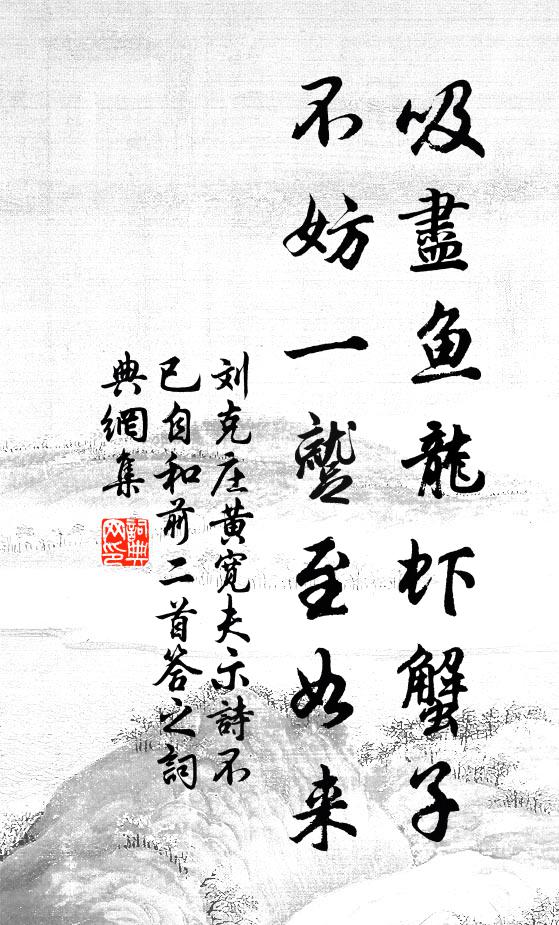 吸盡鱼龍虾蟹子
不妨一蹵至如来
刘克庄黄寬夫示詩不
已自和前二首答之詞
典網集
詞典
网印